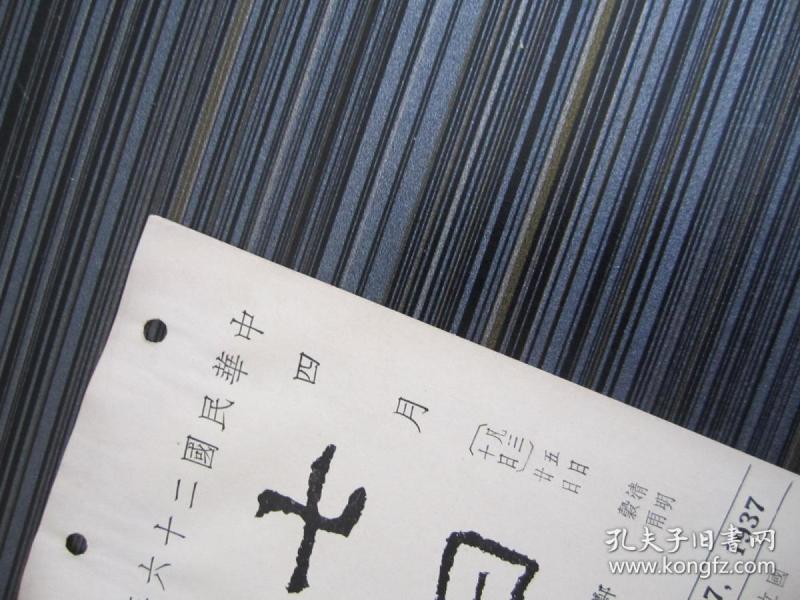 中華民國二十六
四月
七日
〔凡三十日〕
五日 清明
廿日 穀雨
7, 1937
國
孔夫子旧书网
www.kongfz.com